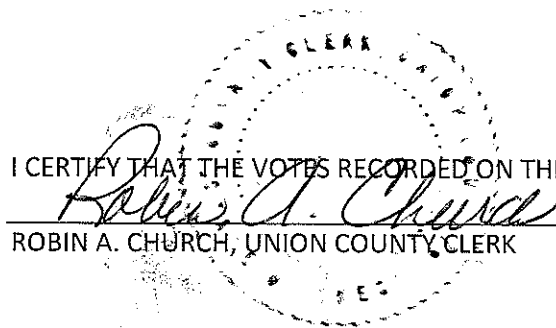 CLERK
I CERTIFY THAT THE VOTES RECORDED ON TH
Robin A. Church
ROBIN A. CHURCH, UNION COUNTY CLERK